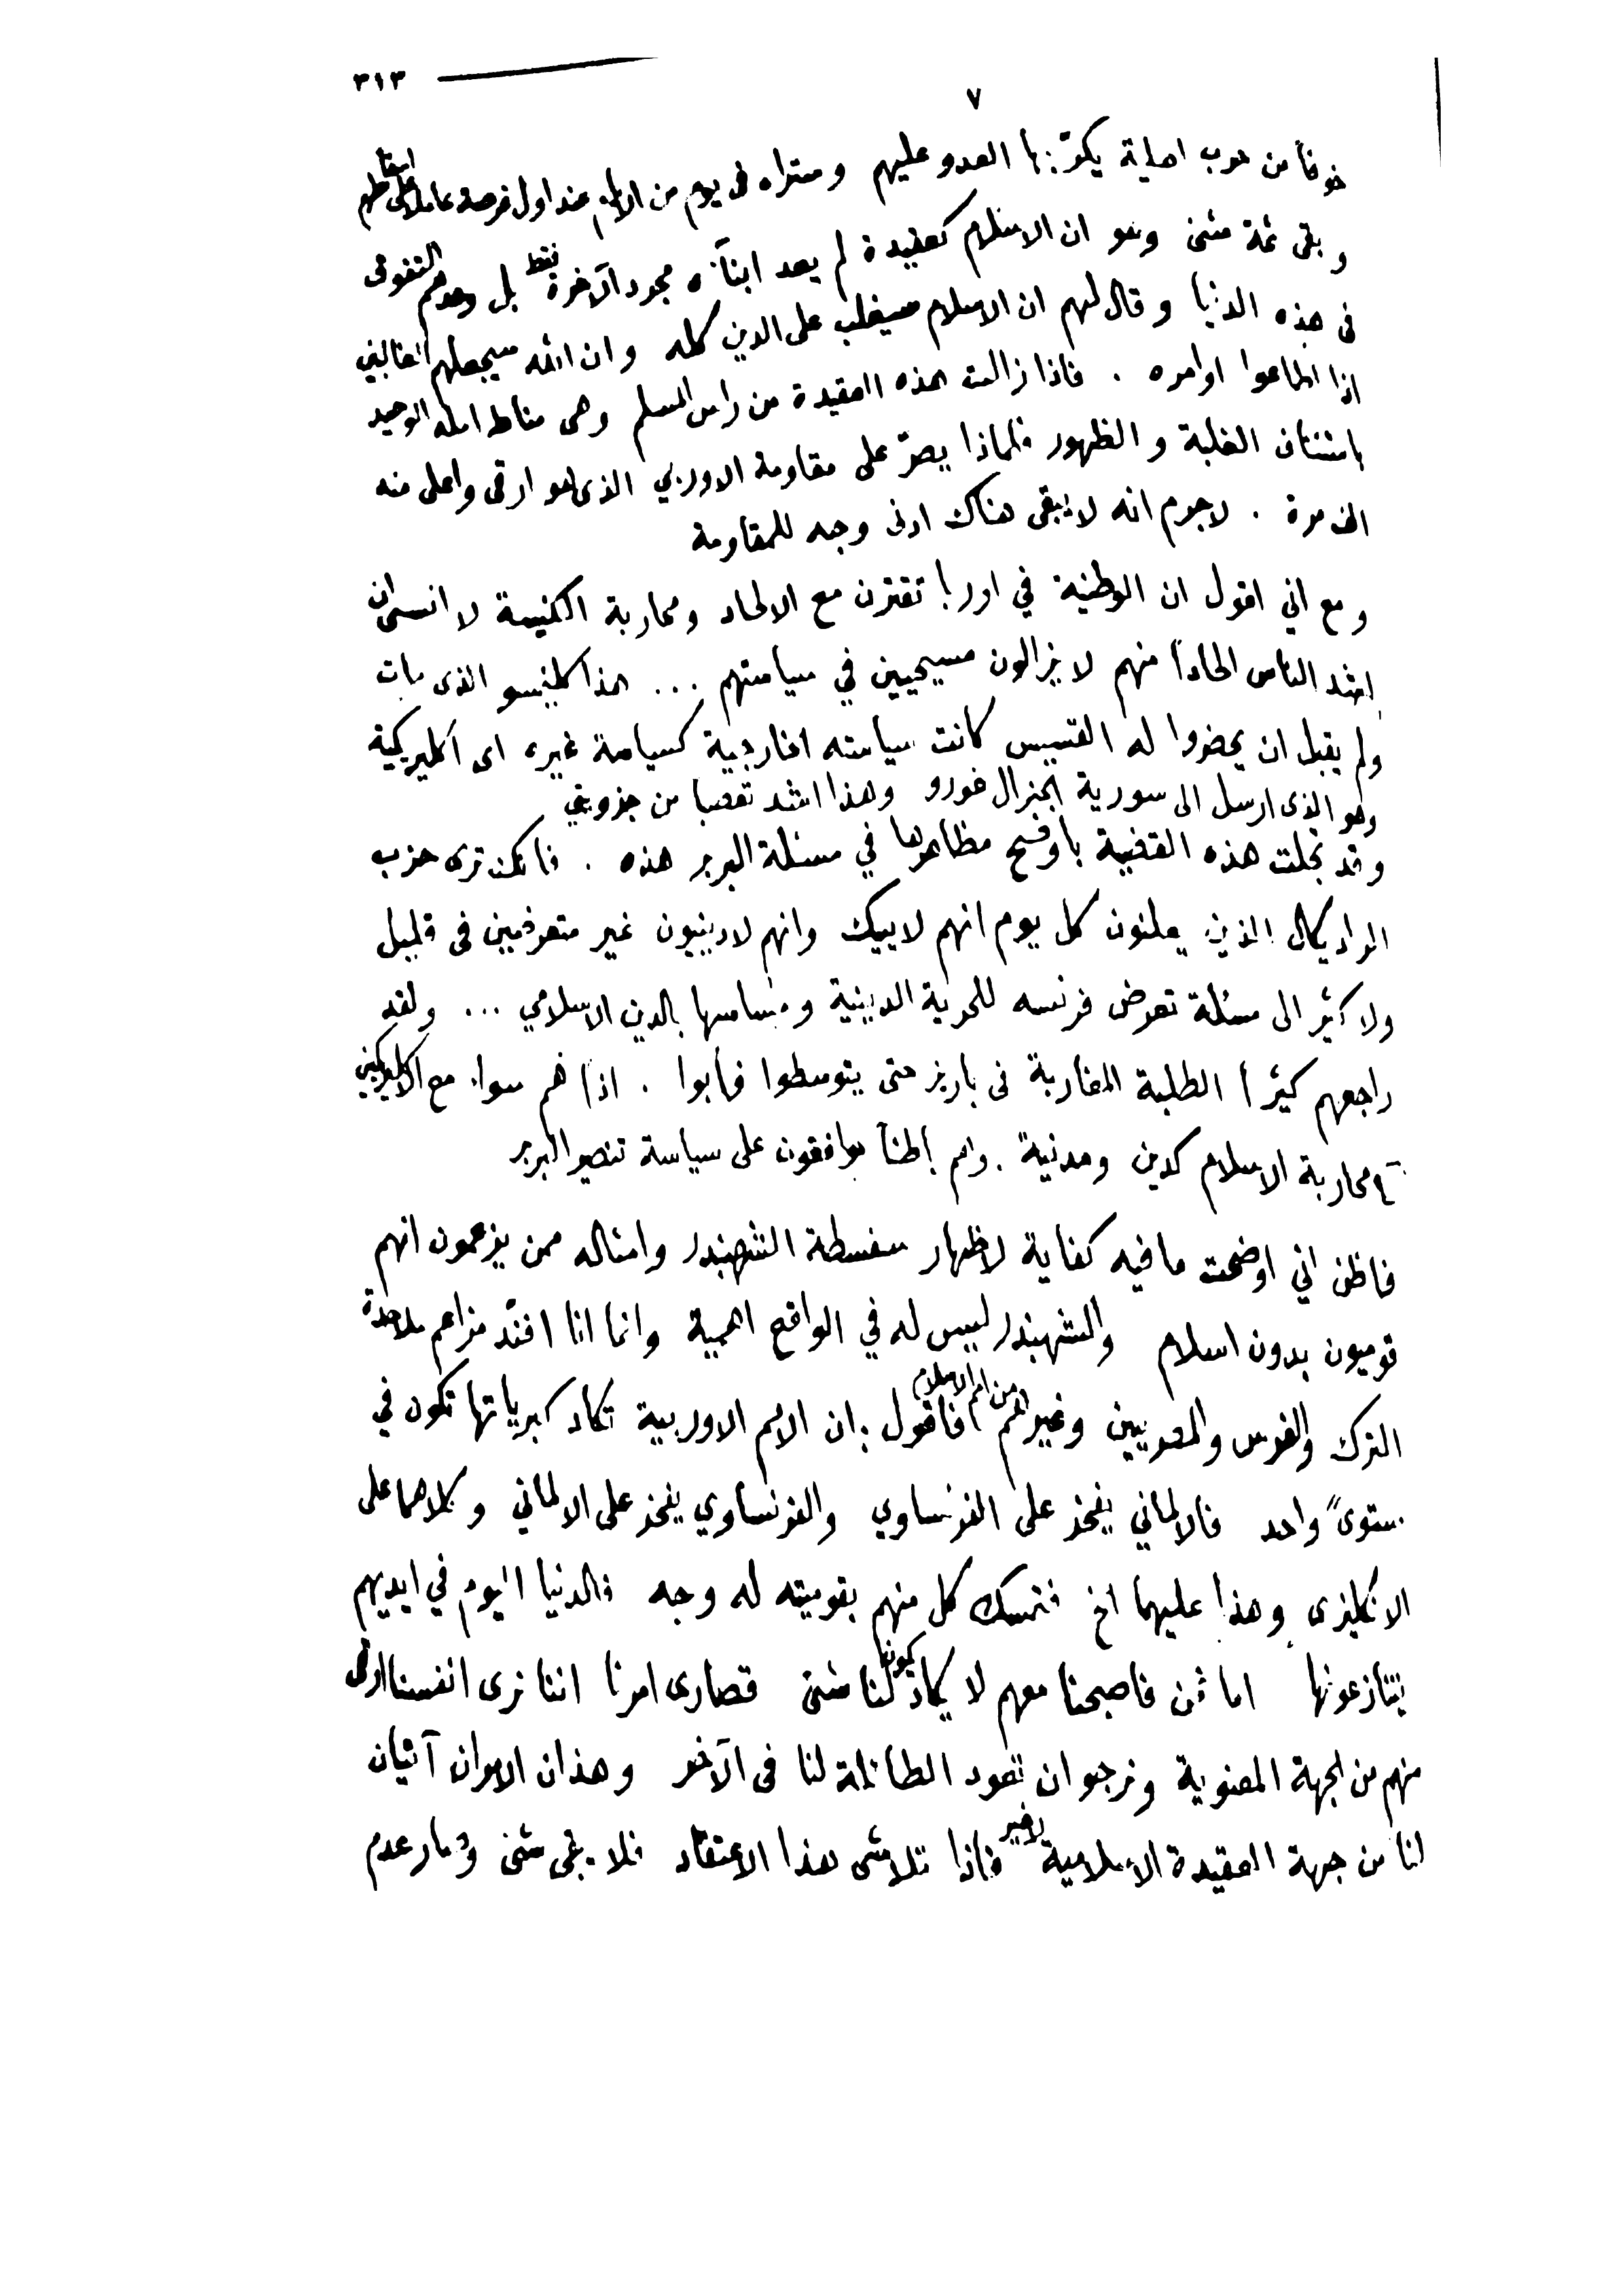 ٣١٣
٧
خوفاً من حرب اهلية يكرّ بها العدو عليهم وستراه فى يوم من الايام عند اول فرصة عاملا على اسقاطهم
وبقى ثمة شئ وهو ان الاسلام كعقيدة لم يعد ابناءه مجرد الآخرة فقط بل وعدهم التفوق
فى هذه الدنيا وقال لهم ان الاسلام سيغلب على الدين كله وان الله سيجعلهم الغالبين
اذا اطاعوا اوامره . فاذا زالت هذه العقيدة من راس المسلم وهى مناط امله الوحيد
بامتنان الغلبة والظهور فلماذا يصرّ على مقاومة الاوربي الذى هو ارقى واعلى منه
الف مرة . لاجرم انه لا يبقى هناك ادنى وجه للمقاومة
ومع اني اقول ان الوطنية في اوربا تقترن مع الالحاد ومحاربة الكنيسة لا انسى ان
اشد الناس الحاداً منهم لا يزالون مسيحيين في سياستهم ... هذا كلمنسو الذى مات
ولم يقبل ان يحضروا له القسيس كانت سياسته الخارجية كسياسة غيره اى اكليريكية
وهو الذى ارسل الى سورية الجنرال غورو وهذا اشد تعصبا من جزويتي
وقد تجلت هذه القضية بأوضح مظاهرها في مسئلة البربر هذه . فانك ترى حزب
الراديكال الذين يعلنون كل يوم انهم لاييك وانهم لادينيون غير متعرضين فى قليل
ولا كثير الى مسئلة تعرض فرنسه للحرية الدينية ومساسها بالدين الاسلامي ... ولقد
راجعهم كثيراً الطلبة المغاربة فى باريز حتى يتوسطوا فأبوا . اذاً هم سواء مع الاكليريكيين
فى محاربة الاسلام كدين ومدنية . وهم باطناً موافقون على سياسة تنصير البربر
فاظن اني اوضحت ما فيه كفاية لاظهار سفسطة الشهبندر وامثاله ممن يزعمون انهم
قوميون بدون اسلام والشهبندر ليس له في الواقع اهمية وانما انا افنّد مزاعم ملاحدة
الترك والفرس والمصريين وغيرهم من امم الاسلام فاقول : ان الامم الاوربية تكاد كبرياتها تكون في
مستوىً واحد فالالماني يفخر على الفرنساوي والفرنساوي يفخر على الالماني وكلاهما على
الانكليزى وهذا عليهما الخ فتمسك كل منهم بقوميته له وجه فالدنيا اليوم في ايديهم
يتنازعونها اما نحن فاصبحنا معهم لا يكاد يكون لنا شئ قصارى امرنا اننا نرى انفسنا ارقى
منهم من الجهة المعنوية ونرجو ان تعود الطائلة لنا فى الآخر وهذان الامران آتيان
لنا من جهة العقيدة الاسلامية لاغير فاذا تلاشى هذا الاعتقاد فلا يبقى شئ وصار عدم